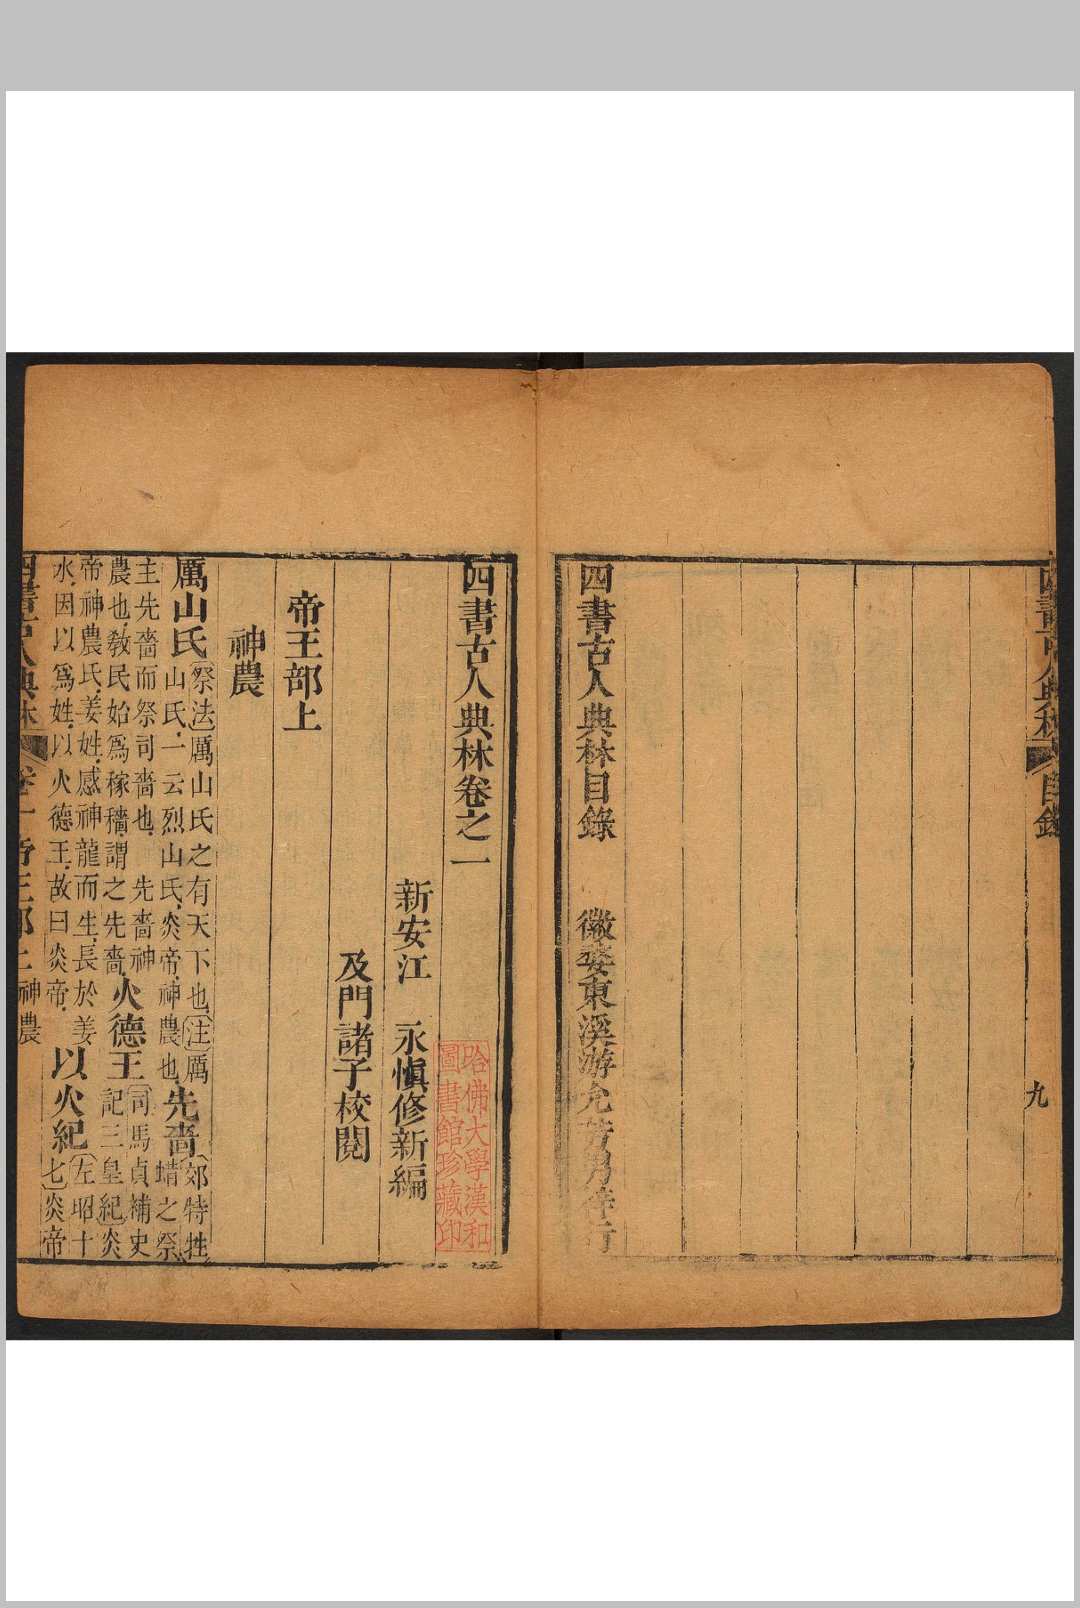 四書古人典林 目錄
九
四書古人典林目錄 徽婺東溪游允芳男梓行
四書古人典林卷之一
新安江 永慎修新編
及門諸子校閱
帝王部上
神農
厲山氏
祭法厲山氏之有天下也注厲
山氏一云烈山氏炎帝神農也
先嗇
郊特牲
蜡之祭
主先嗇而祭司嗇也 先嗇神
農也教民始爲稼穡謂之先嗇
火德王
司馬貞補史
記三皇紀炎
帝神農氏姜姓感神龍而生長於姜
水因以爲姓以火德王故曰炎帝
以火紀
左昭十
七炎帝
四書古人典林 卷一 帝王部上 神農
哈佛大學漢和
圖書館珍藏印